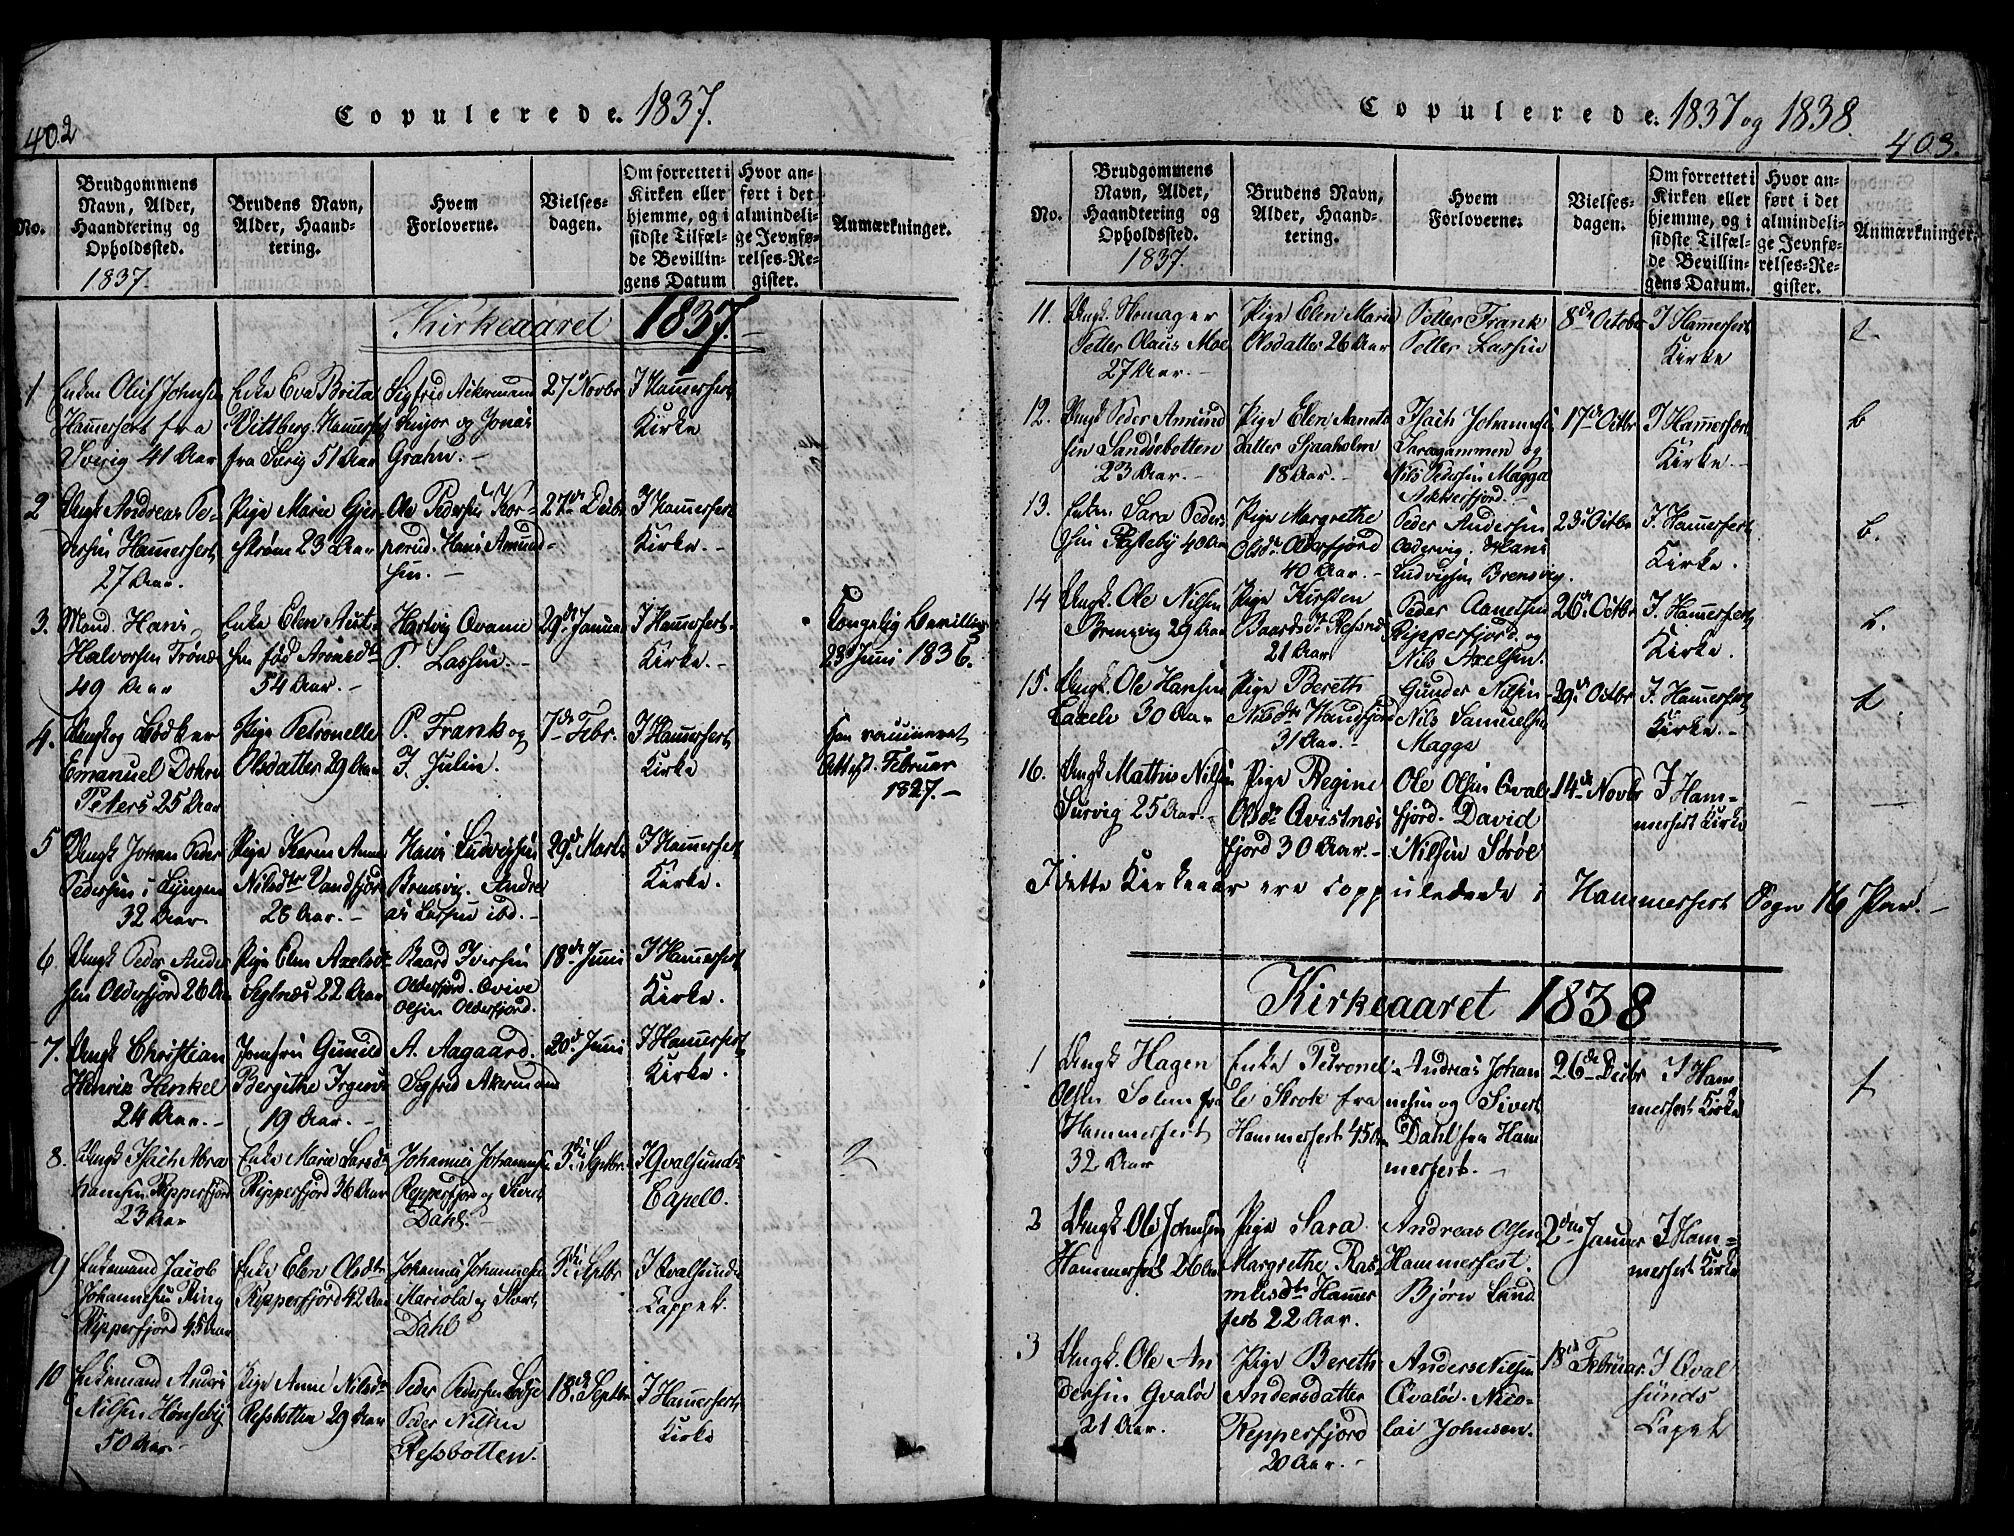 402
Copulerede. 1837.
No.
Brudgommens
Navn, Alder,
Haandtering og
Opholdssted.
1837.
Brudens Navn,
Alder, Haand-
tering.
Hvem
Forloverne.
Vielses-
dagen.
Om forrettet i
Kirken eller
hjemme, og i
sidste Tilfæl-
de Bevillin-
gens Datum
Hvor an-
ført i det
almindeli-
ge Jevnfø-
relses-Re-
gister.
Anmærkninger.
Kirkeaaret 1837.
1
Olüf Johnsen
Hammerfest fra
41 Aar
Enke Eva Brita
Vittberg. Hammerfest
fra 51 Aar
Sigfred Akermand
og Jonas
Grahn.
27 Novbr
I Hammerfest
Kirke
2
Ungk Andreas Pe-
dersen Hammerfest
27 Aar.
Pige Marie Gjer-
strøm 23 Aar
Ole Pedersen Kor-
perud. Hans Amund-
sen.
27de Decbr
I Hammerfest
Kirke.
3.
Hans
Halvorsen Trønæs
49 Aar
Enke Elen
født
54 Aar.
Hartvig
P. Lassen.
29de Januar
I Hammerfest
Kirke.
Kongelig Bevilling
28 Juni 1836.
4.
Ungk og Bødker
Emanuel
Peters 25 Aar
Pige Petronelle
Olsdatter 29 Aar
P. Frank og
J. Julin.
7de Febr.
I Hammerfest
Kirke
Attest. Februar
1827.
5
Ungk Johan Peder
Pedersen i Lyngen
32 Aar.
Pige Karen Anne
Nilsdtr Vandfjord
26 Aar.
Hans Ludvigsen
Bremsvig. Andre
as Larsen ibd.
29de Marts
I Hammerfest
Kirke.
6
Ungk Peder Ander
sen Olderfjord 26 Aar
Pige Elen Axelsdtr
Seglnæs 22 Aar
Baard Iversen
Olderfjord.
Olsen Olderfjord.
18de Juni
I Hammerfest
Kirke.
7.
Ungk Christian
Henrik Henkel
24 Aar.
Jomfru Gunild
Bergithe
19 Aar.
A. Aagaard.
Sigfred Akermand
20de Juni
I Hammerfest
Kirke.
8.
Ungk Isach Abra
hamsen Repperfjord
23 Aar
Enke Marie Larsdtr
Repperfjord 36 Aar
Johannes Johannesen
Repperfjord og Sivert
Dahl.
3die Septbr
I Qvalsunds
Capell.
9
Enkemand Jacob
Johannesen
Repperfjord 45 Aar
Enke Elen Olsdtr
Repperfjord 42 Aar
Johannes Johannesen
Mariola og Sivert
Dahl
3die Septbr
I Qvalsunds
Cappel.
10
Enkemand Anders
Nilsen Hønseby
50 Aar
Pige Anne Nilsdtr
Refsbotten 29 Aar
Peder Pedersen
Peder Nilsen
Refsbotten.
18de Septbr
I Hammerfest
Kirke
Copulerede. 1837 og 1838.
403.
No.
Brudgommens
Navn, Alder,
Haandtering og
Opholdssted.
1837.
Brudens Navn,
Alder, Haand-
tering.
Hvem
Forloverne.
Vielses-
dagen.
Om forrettet i
Kirken eller
hjemme, og i
sidste Tilfæl-
de Bevillin-
gens Datum.
Hvor an-
ført i det
almindeli-
ge Jevnfø-
relses-Re-
gister.
Anmærkninger.
11.
Ungk. Skomager
Petter Olaus Moe
27 Aar.
Pige Elen Marie
Olsdatter 26 Aar
Petter Frank
Petter Lassen
8de October
I Hammerfest
Kirke
12.
Ungk Peder Amund
sen Sandsebotten
23 Aar.
Pige Elen
datter Sjaaholm
18 Aar.
Isach Johannesen
Saragammen og
Nils Pedersen Magga
Akkerfjord.
17de Octbr
I Hammerfest
Kirke.
b
13.
Enkm. Sara Peder
sen 40 Aar
Pige Margrethe
Olsdtr
40 Aar.
Peder Andersen
Hans
Ludvigsen Bremsvig.
23de Octbr
I Hammerfest
Kirke.
b.
14
Ungk. Ole Nilsen
Bremsvig 29 Aar
Pige Kirsten
Baardsdtr Refsnes
21 Aar
Peder
Repperfjord. og
Nils Axelsen.
26de Octbr
I. Hammerfest
Kirke.
15.
Ungk. Ole Hansen
30 Aar
Pige Bereth
Nilsdtr Vandfjord
31 Aar.
Gunder Nilsen
Nils Samuelsen
Magga
29de Octbr
I. Hammerfest
Kirke.
16.
Ungk. Mathis Nilsen
Survig 25 Aar.
Pige Regine
Olsdtr
fjord 30 Aar.
Ole Olsen Qval
fjord. David
Nilsen Sørøe
14de Novbr
I Ham-
merfest Kirke
I dette Kirkeaar ere coppulerede i Hammerfest Sogn 16 Par.
Kirkeaaret 1838
1
Ungk Hagen
Olsen fra
Hammerfest
32 Aar
Enke Petronel
le Strok fra
Hammerfest 45 Aar
Andreas Johan
nesen og Sivert
Dahl fra Ham
merfest.
26de Decbr
I Ham
merfest Kirke
2
Ungk. Ole Johnsen
Hammerfest 26 Aar
Pige Sara
Margrethe Ras-
musdtr Hammer
fest 22 Aar.
Andreas Olsen
Hammerfest.
Bjørn Lund
2den Januar
I Ham-
merfest Kirke
3
Ungk. Ole An
dersen Qvaløe
21 Aar.
Pige Bereth
Andersdatter
Repperfjord
20 Aar.
Anders Nilsen
Qvaløe. Nico-
lai Johnsen.
18de Februar
I Qval
sunds
Capel